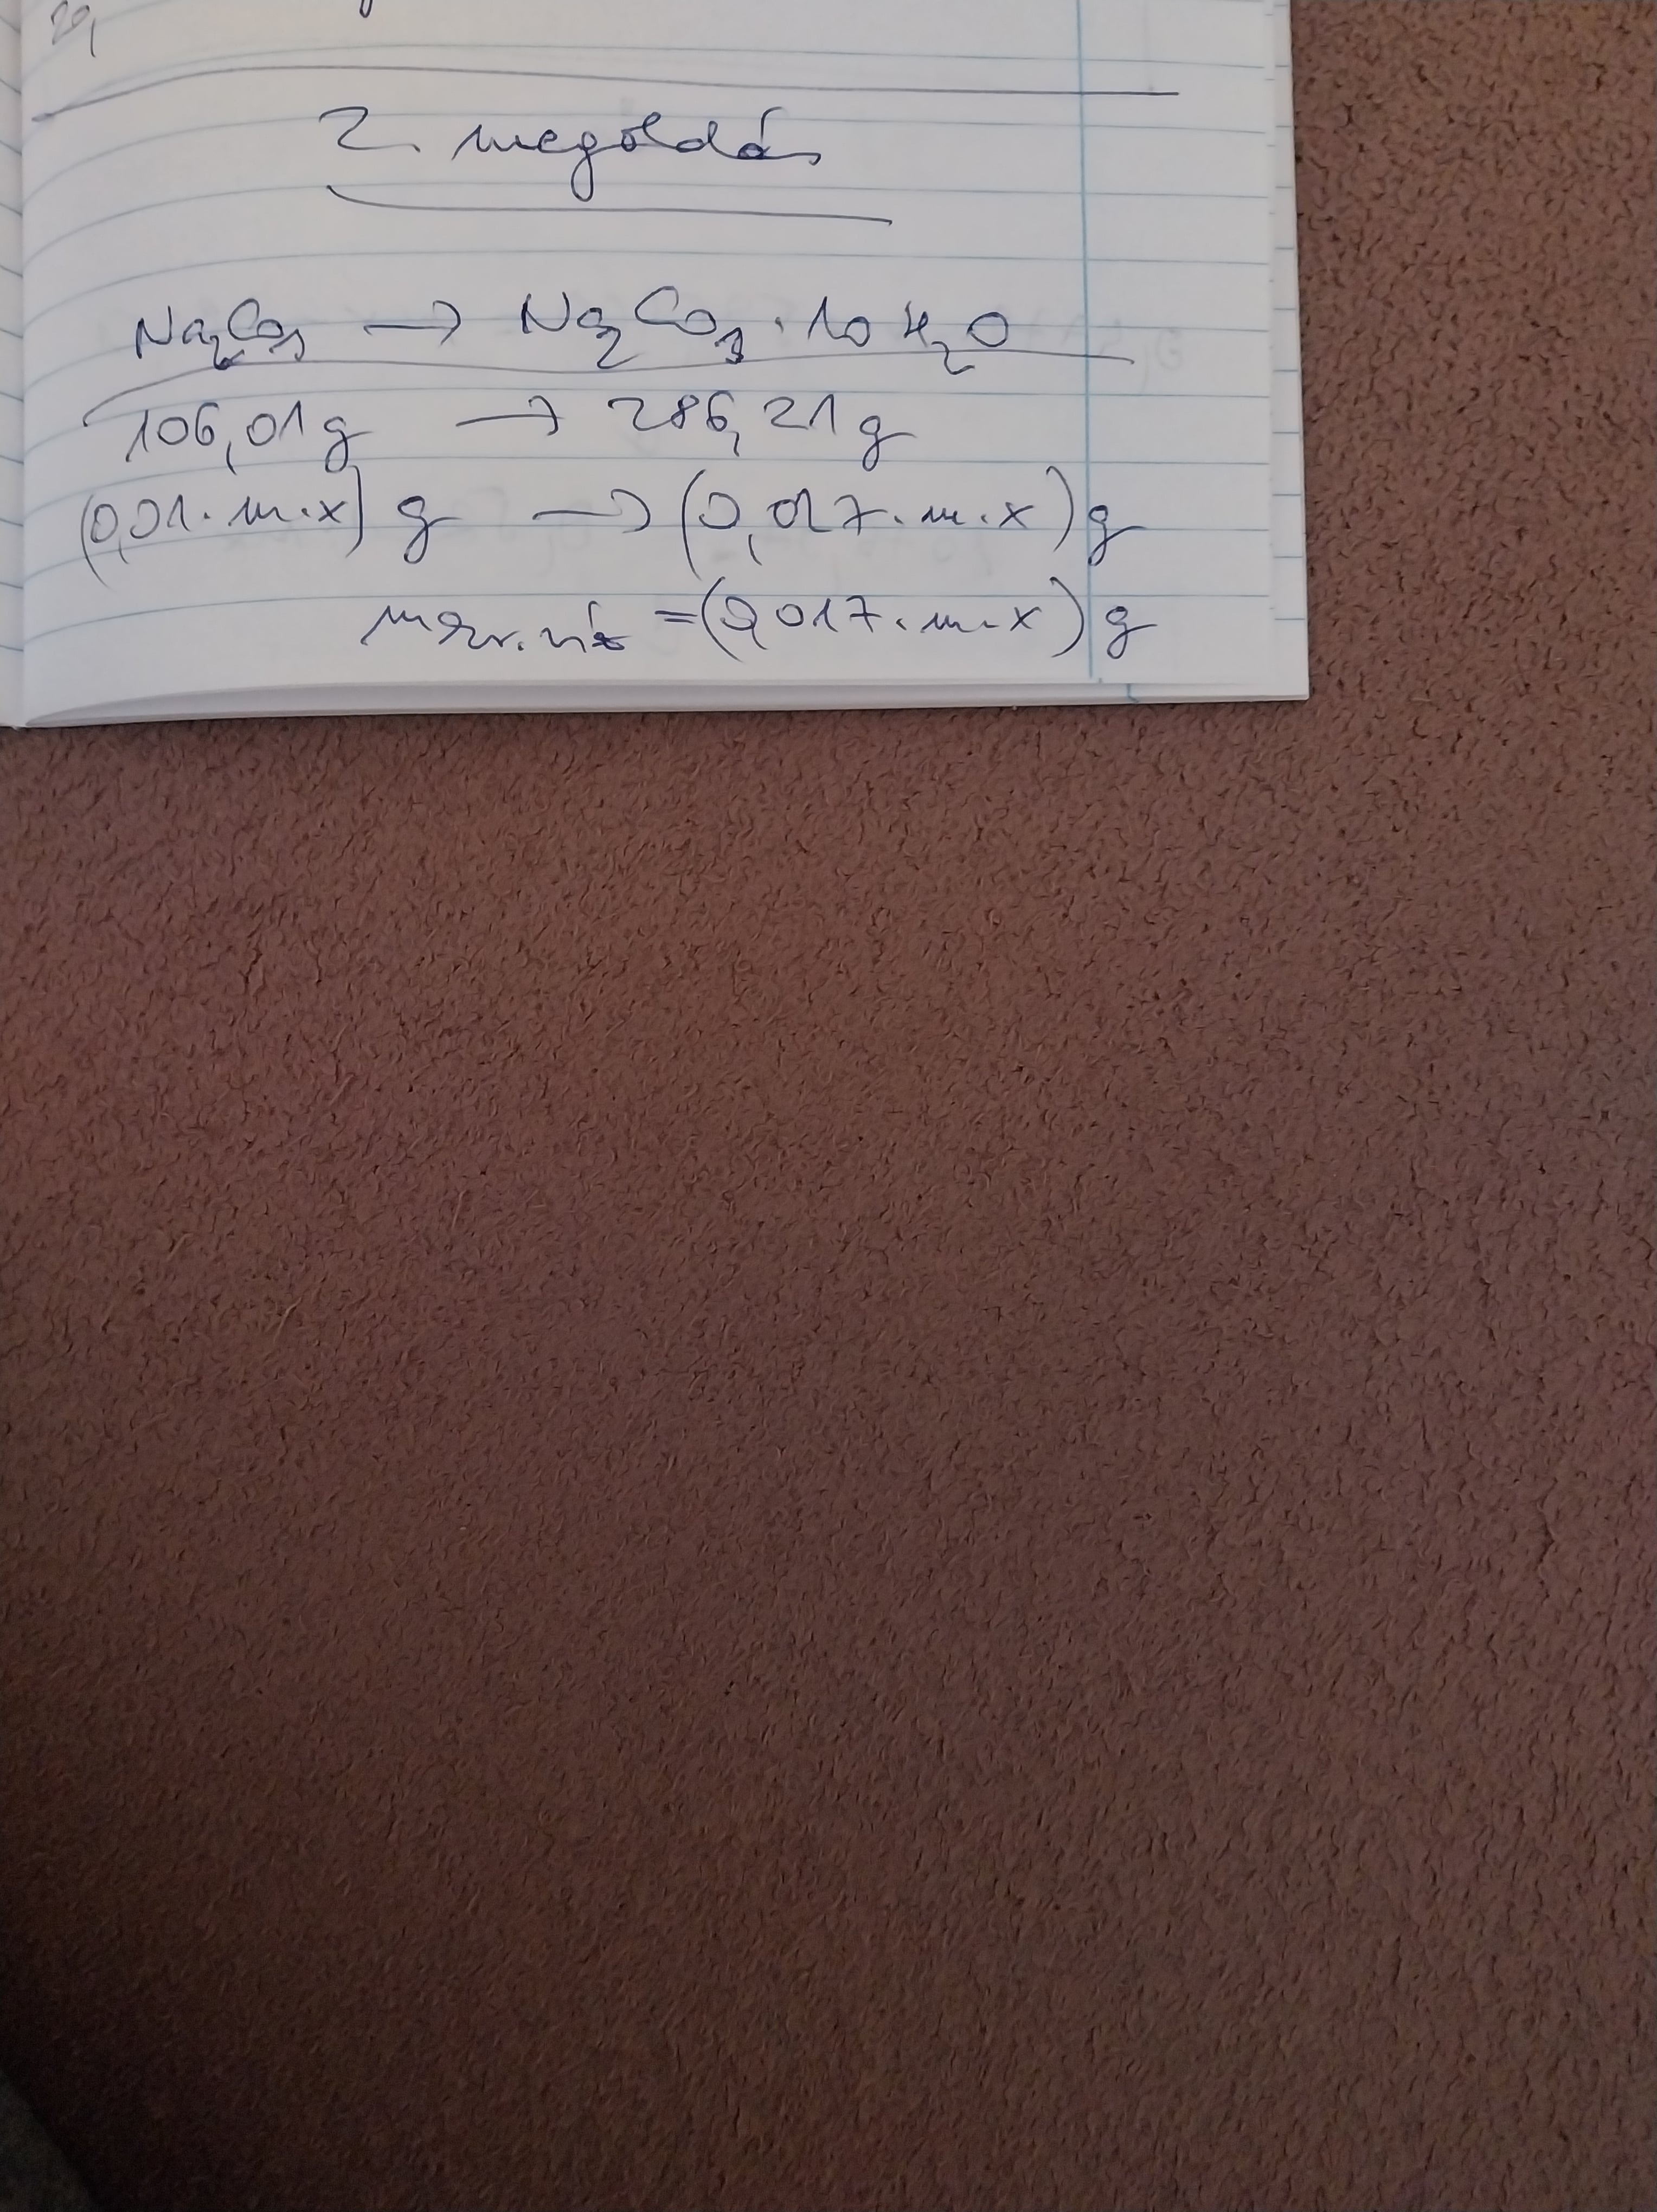 2. megoldás
Na2CO3 → Na2CO3 · 10 H2O
106,01 g → 286,21 g
(0,01 · m · x) g → (0,027 · m · x) g
= (0,017 · m · x) g